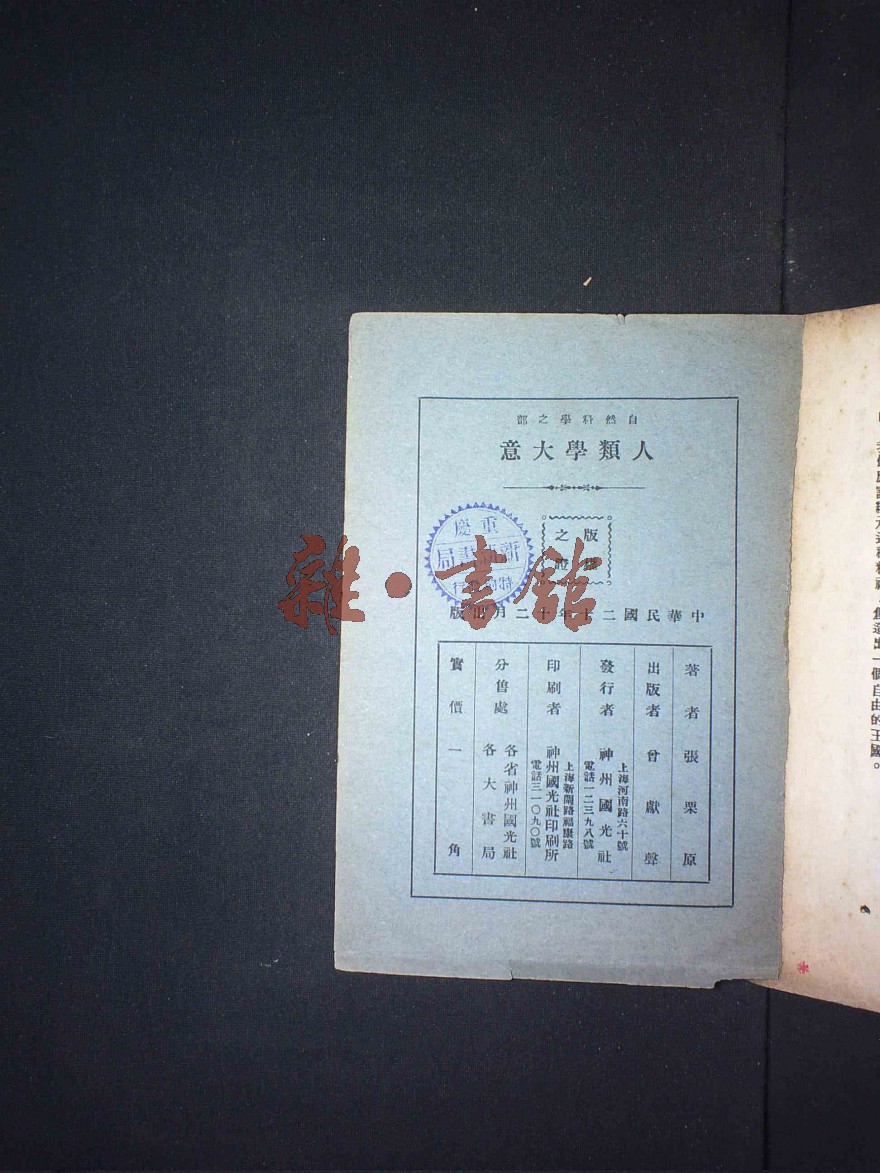 自然科學之部
人類學大意
版權
之證
重慶
新書局
特約發行
中華民國二十年十二月出版
著者 張栗原
出版者 曾獻聲
發行者 神州國光社
上海河南路六十號
電話一二三九八號
印刷者 神州國光社印刷所
上海新閘路福康路
電話三一〇九〇號
分售處 各省神州國光社
各大書局
實價一角
雜·書館
個自由的王國。